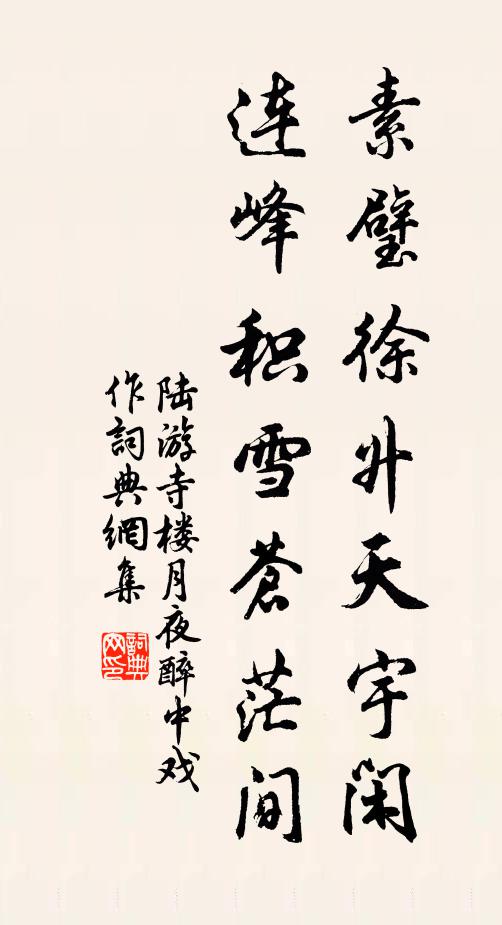 素璧徐升天宇闲
连峰积雪苍茫间
陆游寺楼月夜醉中戏
作詞典網集
詞典网印